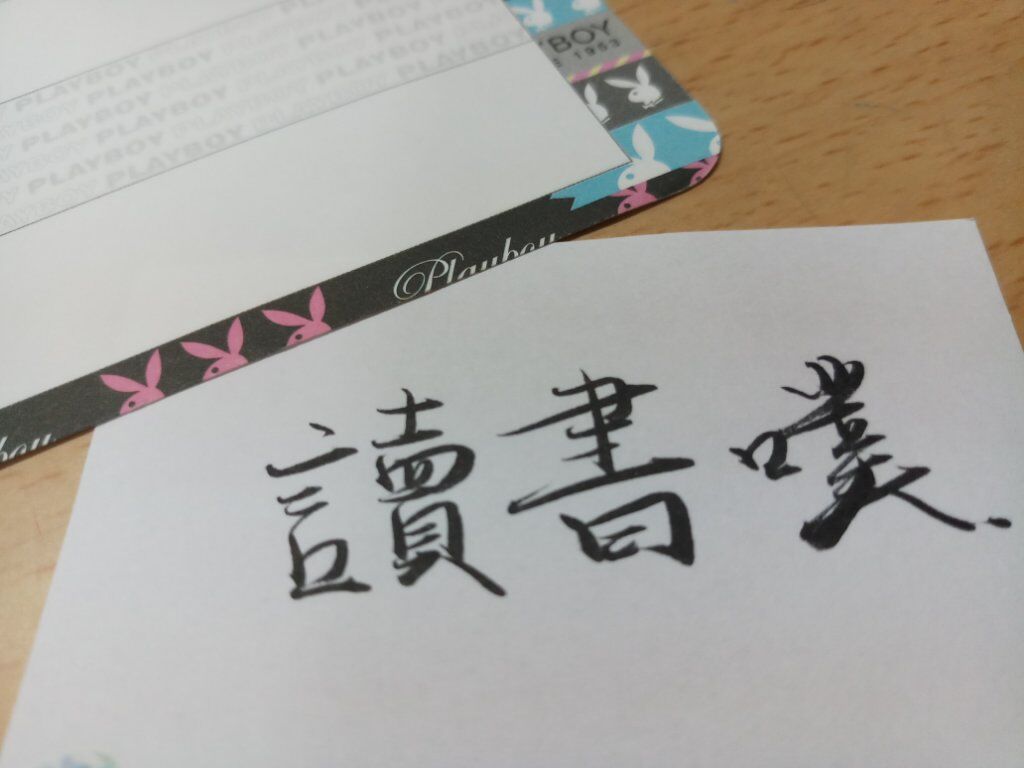 PLAYBOY PLAYBOY
PLAYBOY PLAYBOY PLAYBOY
PLAYBOY PLAYBOY PLAYBOY
PLAYBOY PLAYBOY PLAYBOY
PLAYBOY PLAYBOY
YBOY
1953
Playboy
讀書噗.